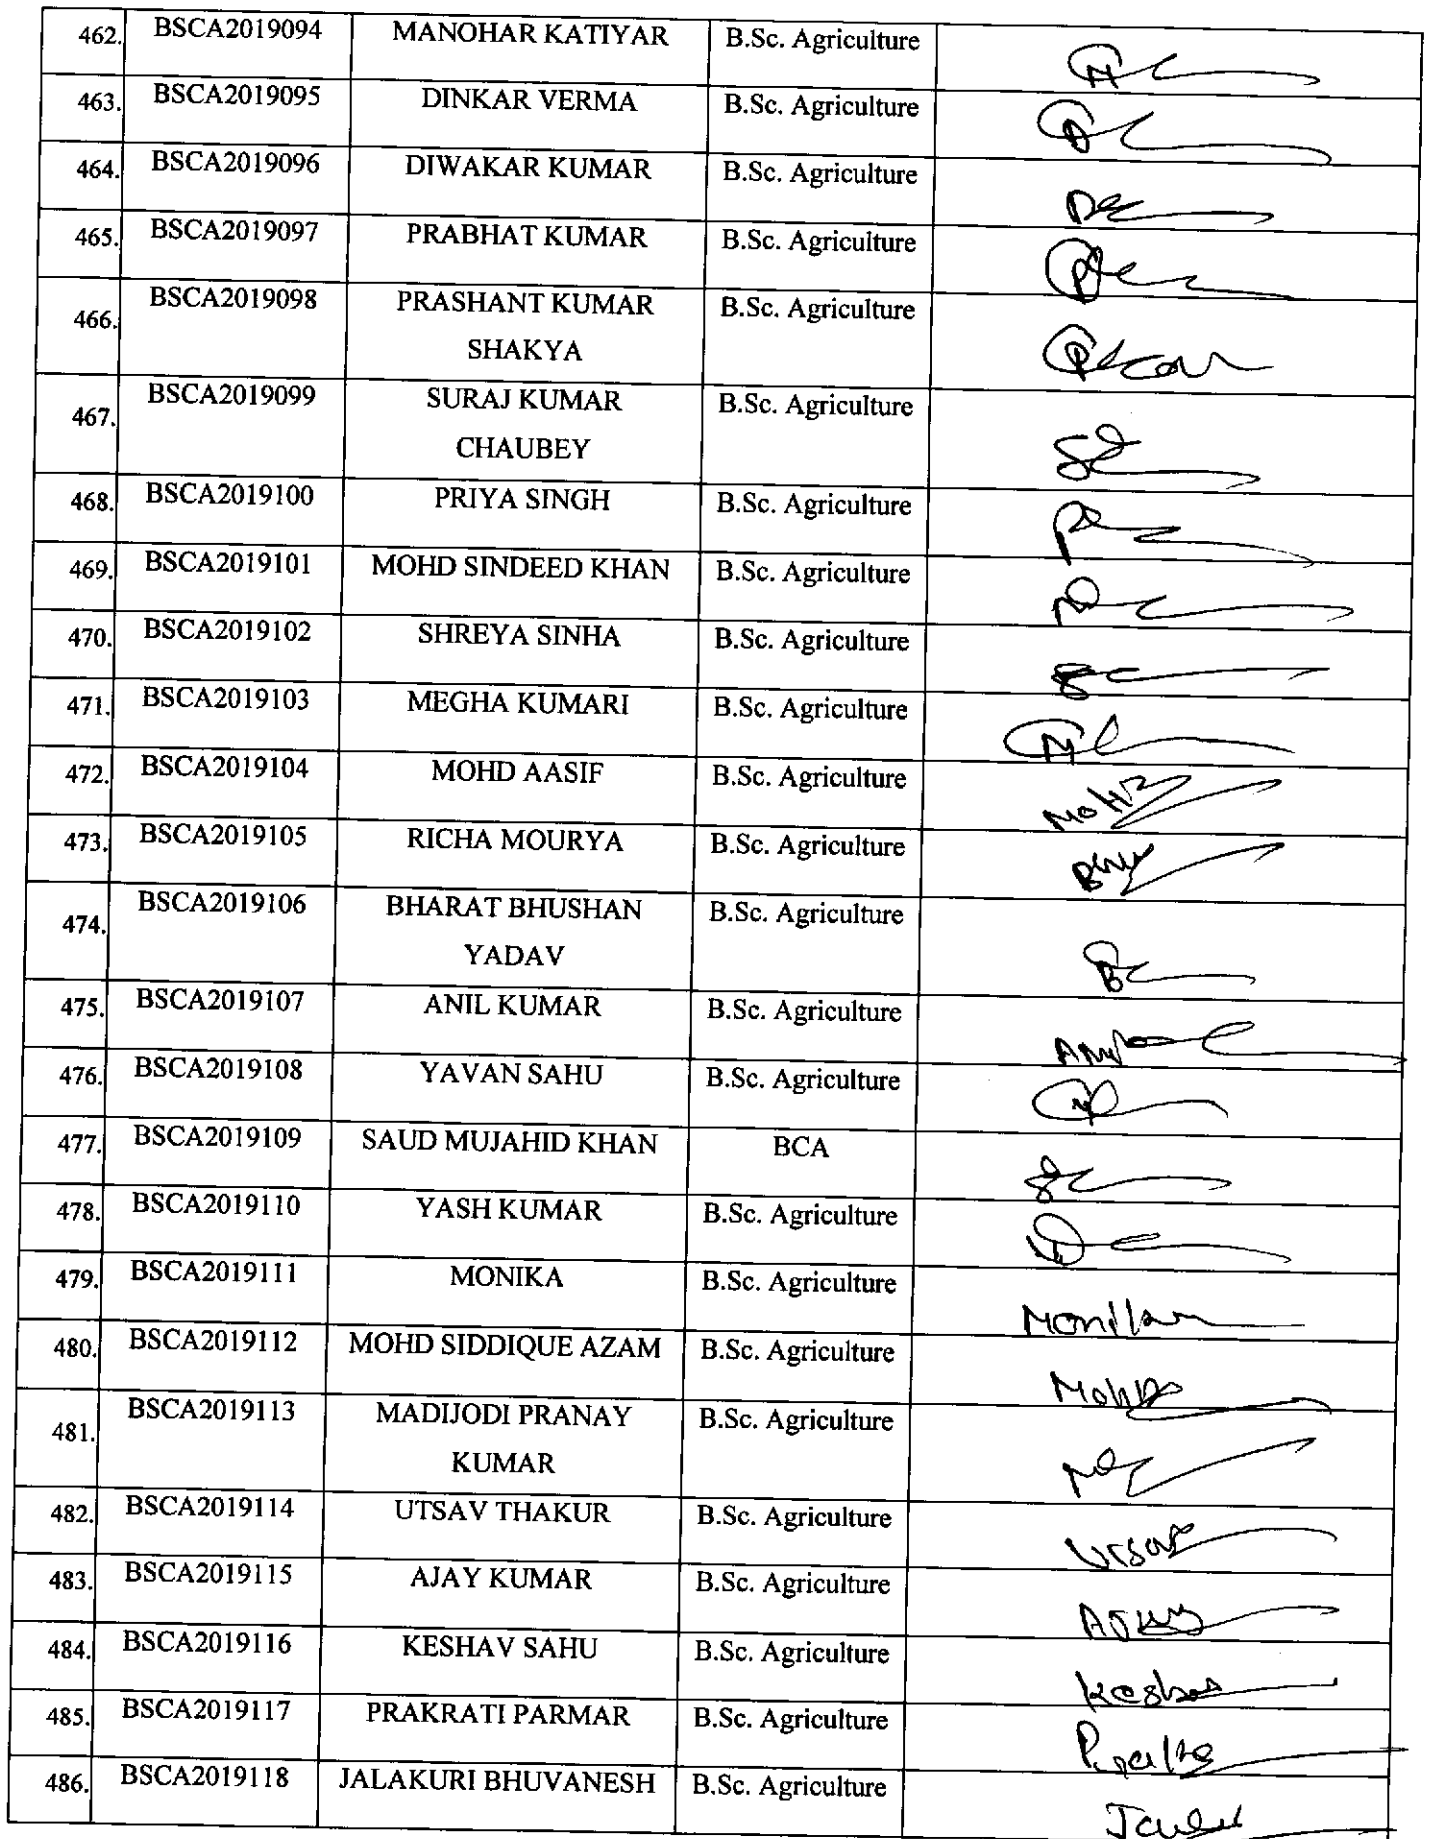 462. BSCA2019094 MANOHAR KATIYAR B.Sc. Agriculture
463. BSCA2019095 DINKAR VERMA B.Sc. Agriculture
464. BSCA2019096 DIWAKAR KUMAR B.Sc. Agriculture
465. BSCA2019097 PRABHAT KUMAR B.Sc. Agriculture
466. BSCA2019098 PRASHANT KUMAR B.Sc. Agriculture
SHAKYA
467. BSCA2019099 SURAJ KUMAR B.Sc. Agriculture
CHAUBEY
468. BSCA2019100 PRIYA SINGH B.Sc. Agriculture
469. BSCA2019101 MOHD SINDEED KHAN B.Sc. Agriculture
470. BSCA2019102 SHREYA SINHA B.Sc. Agriculture
471. BSCA2019103 MEGHA KUMARI B.Sc. Agriculture
472. BSCA2019104 MOHD AASIF B.Sc. Agriculture
473. BSCA2019105 RICHA MOURYA B.Sc. Agriculture
474. BSCA2019106 BHARAT BHUSHAN B.Sc. Agriculture
YADAV
475. BSCA2019107 ANIL KUMAR B.Sc. Agriculture
476. BSCA2019108 YAVAN SAHU B.Sc. Agriculture
477. BSCA2019109 SAUD MUJAHID KHAN BCA
478. BSCA2019110 YASH KUMAR B.Sc. Agriculture
479. BSCA2019111 MONIKA B.Sc. Agriculture
480. BSCA2019112 MOHD SIDDIQUE AZAM B.Sc. Agriculture
481. BSCA2019113 MADIJODI PRANAY B.Sc. Agriculture
KUMAR
482. BSCA2019114 UTSAV THAKUR B.Sc. Agriculture
483. BSCA2019115 AJAY KUMAR B.Sc. Agriculture
484. BSCA2019116 KESHAV SAHU B.Sc. Agriculture
485. BSCA2019117 PRAKRATI PARMAR B.Sc. Agriculture
486. BSCA2019118 JALAKURI BHUVANESH B.Sc. Agriculture